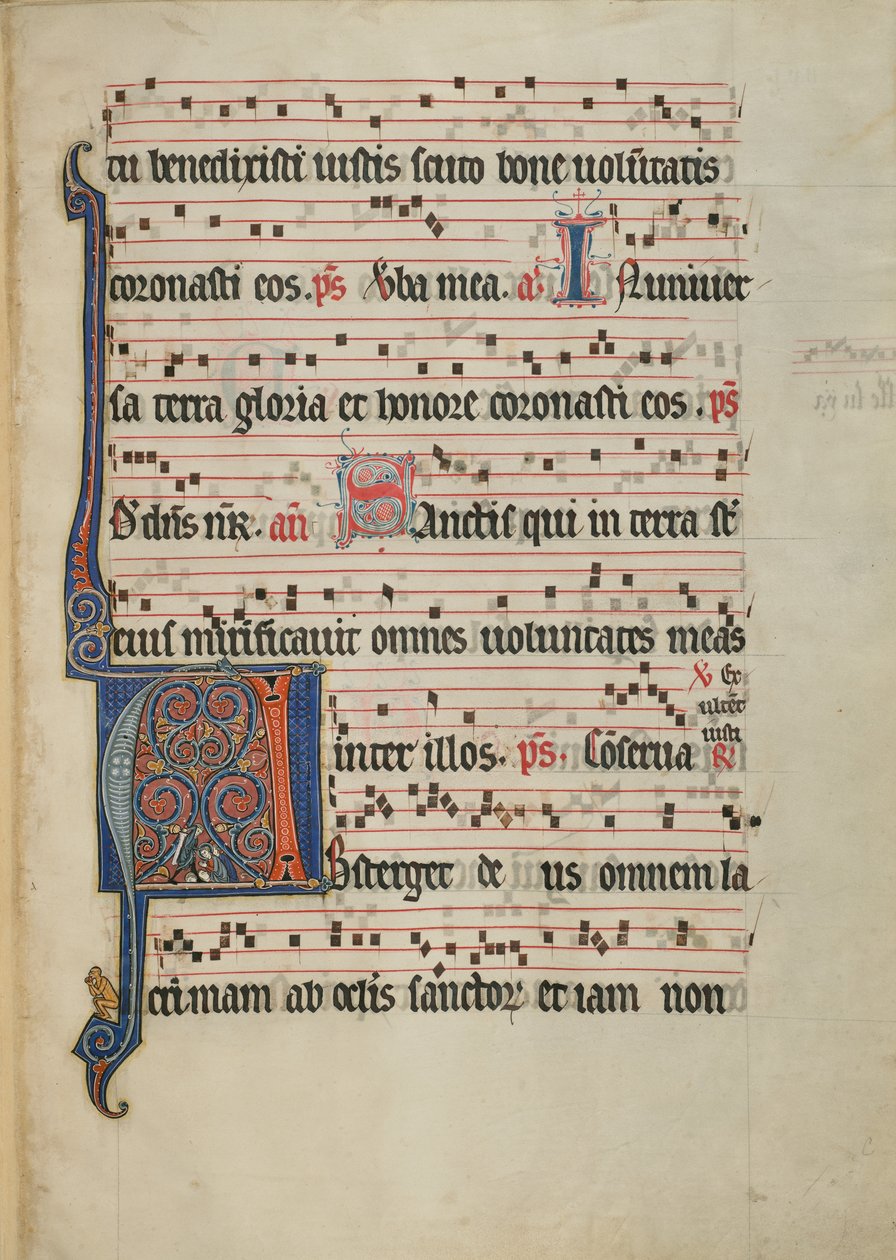 tu benedixisti iustis scuto bone uolu̅tatis
coronasti eos. p̅s ꟟ba mea. a̅. IN uniuer
sa terra gloria et honore coronasti eos. p̅s
D̅ dn̅s nr̅. an̅ SAnctis qui in terra st̅
eius mirificauit omnes uoluntates meas
inter illos. p̅s. Co̅serua ℣ Ex
ulte̅t
iusti
℟
ABsterget de us omnem la
crimam ab oclis̅ sanctoꝝ et iam non